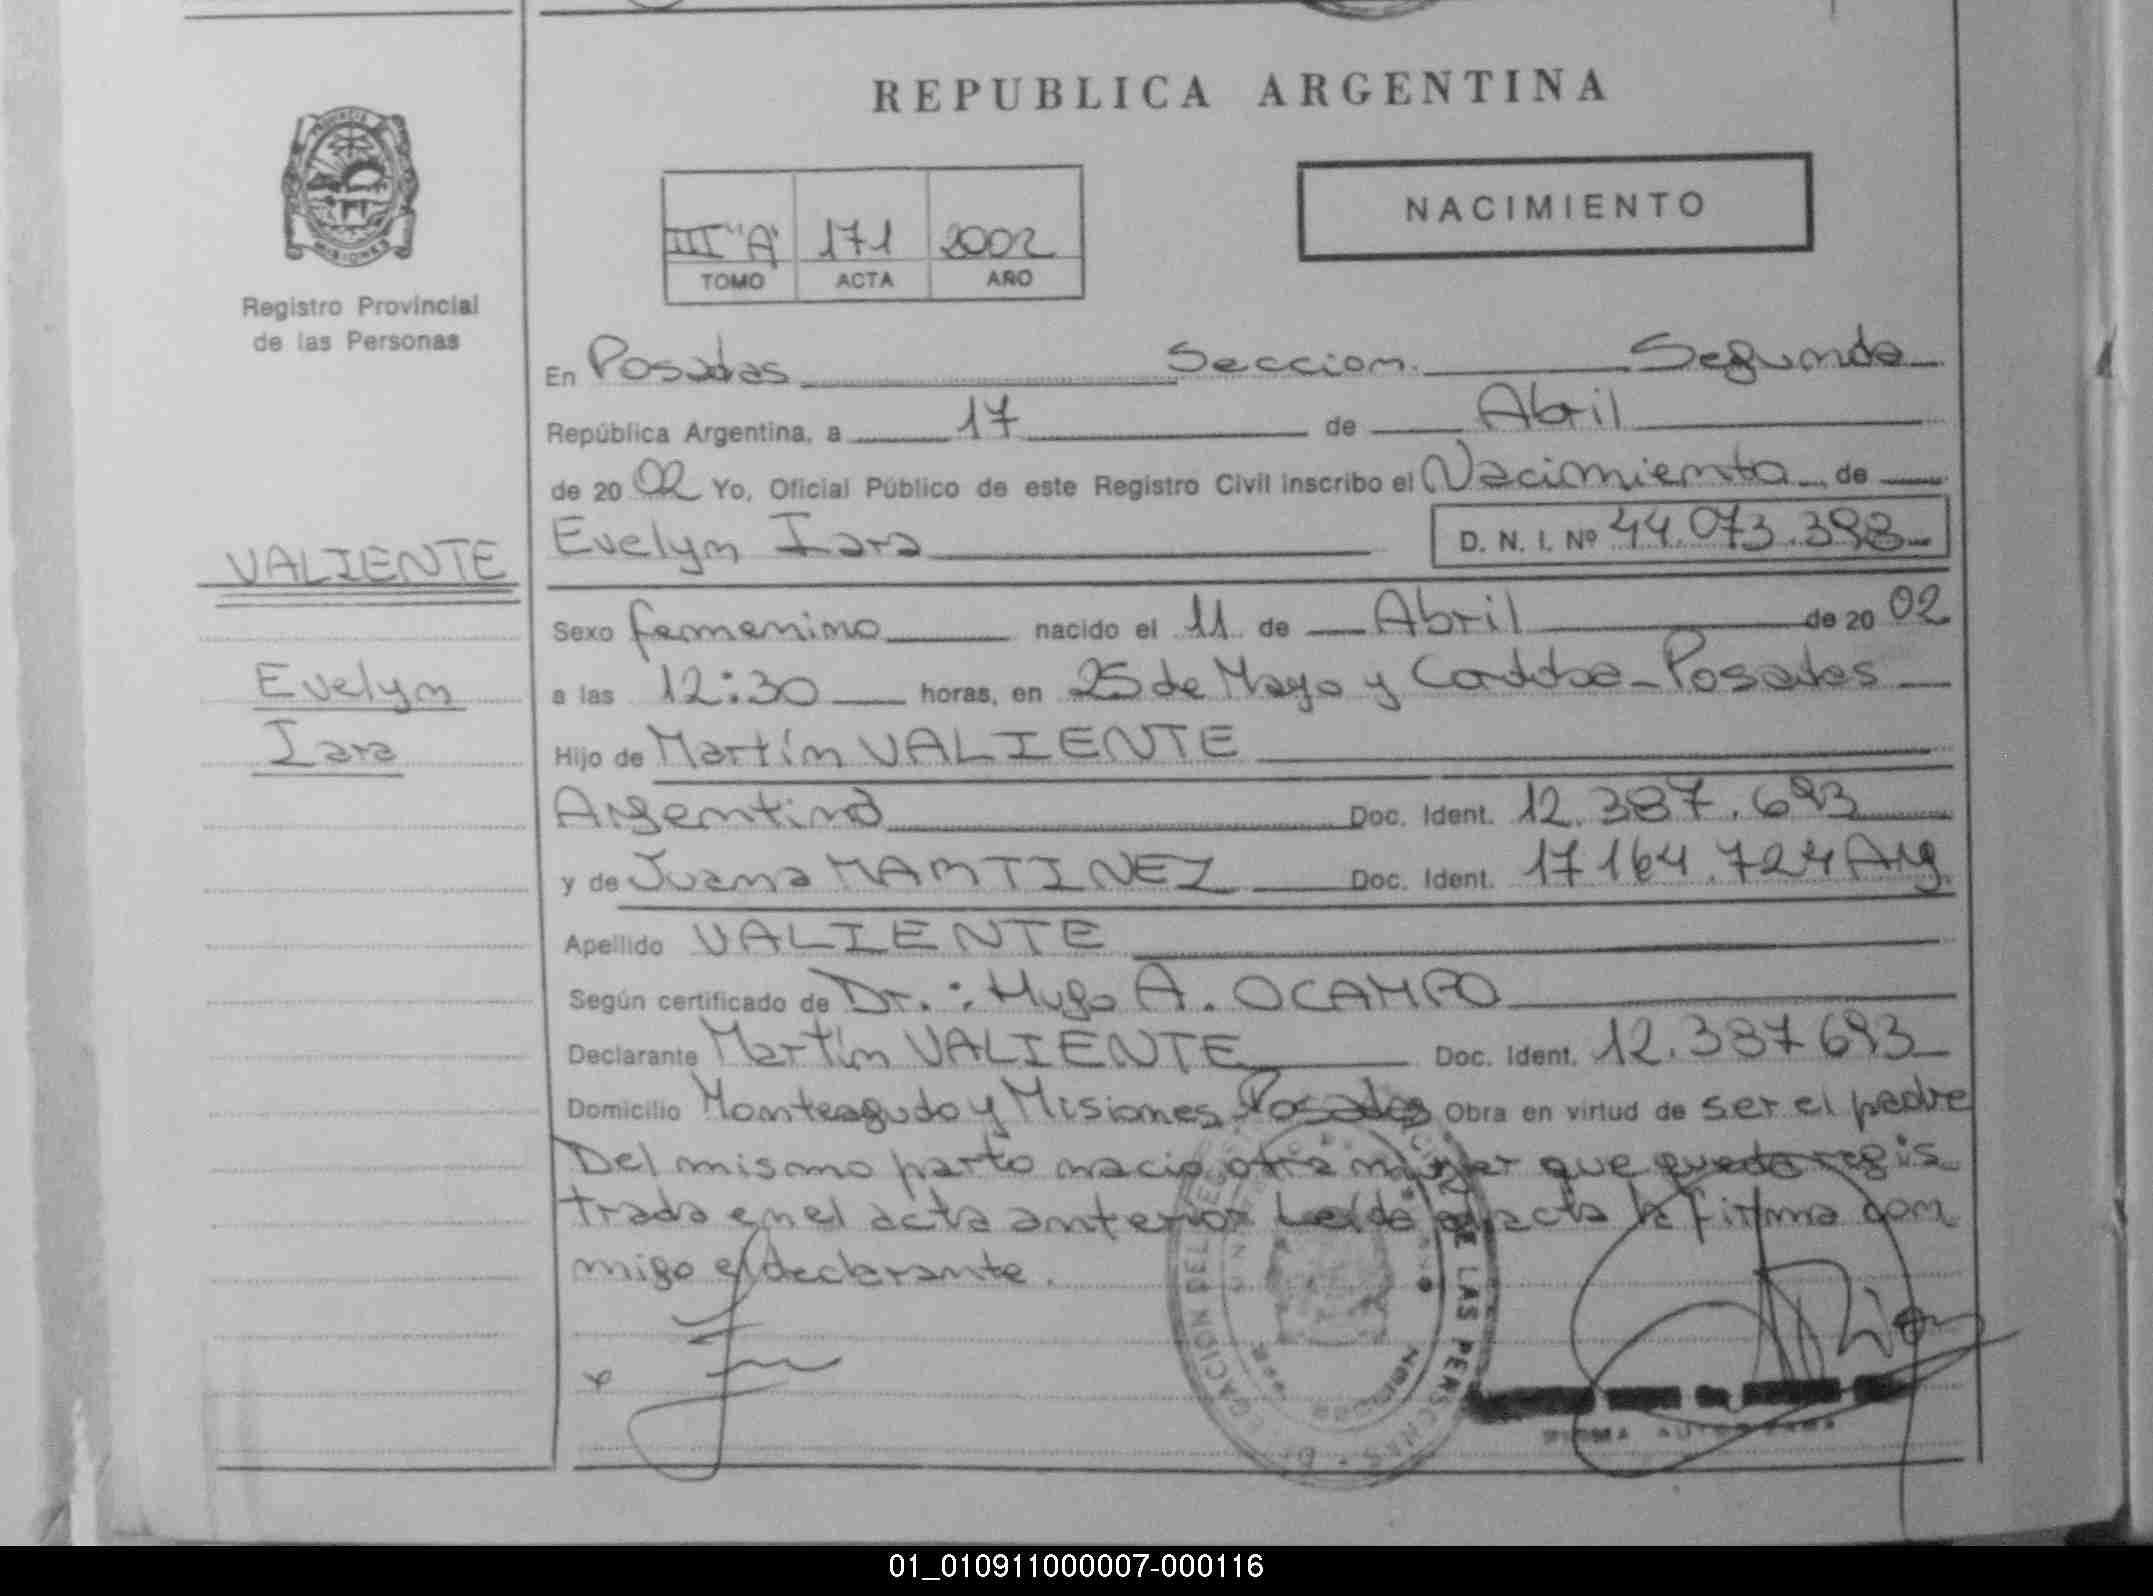 REPUBLICA ARGENTINA
PROVINCIA DE
MISIONES
Registro Provincial
de las Personas
NACIMIENTO
III "A" 171 2002
TOMO ACTA AÑO
En Posadas Seccion Segunda
República Argentina, a 17 de Abril
de 20 02 Yo, Oficial Público de este Registro Civil inscribo el Nacimiento de
VALIENTE
Evelyn Iara D. N. I. Nº 44.073.398
Sexo femenino nacido el 11 de Abril de 20 02
Evelyn
Iara
a las 12:30 horas, en 25 de Mayo y Cordoba - Posadas
Hijo de Martín VALIENTE
Argentino Doc. Ident. 12.387.693
y de Juana MARTINEZ Doc. Ident. 17164.724 Arg.
Apellido VALIENTE
Según certificado de Dr.: Hugo A. OCAMPO
Declarante Martín VALIENTE Doc. Ident. 12.387693
Domicilio Monteagudo y Misiones Posadas Obra en virtud de ser el padre
Del mismo parto nacio otra mujer que queda regis
trada en el acta anterior Leída el acta la firma con
migo el declarante.
DE LAS PERSONAS
01_010911000007-000116